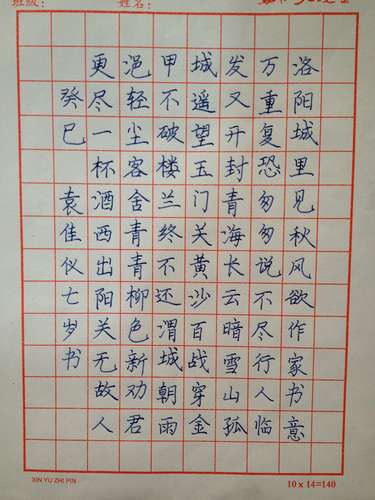 班级：
姓名：
洛阳城里见秋风欲作家书意
万重复恐匆匆说不尽行人临
发又开封青海长云暗雪山孤
城遥望玉门关黄沙百战穿金
甲不破楼兰终不还渭城朝雨
浥轻尘客舍青青柳色新劝君
更尽一杯酒西出阳关无故人
癸巳 袁佳仪七岁书
XIN YU ZHI PIN
10 x 14=140